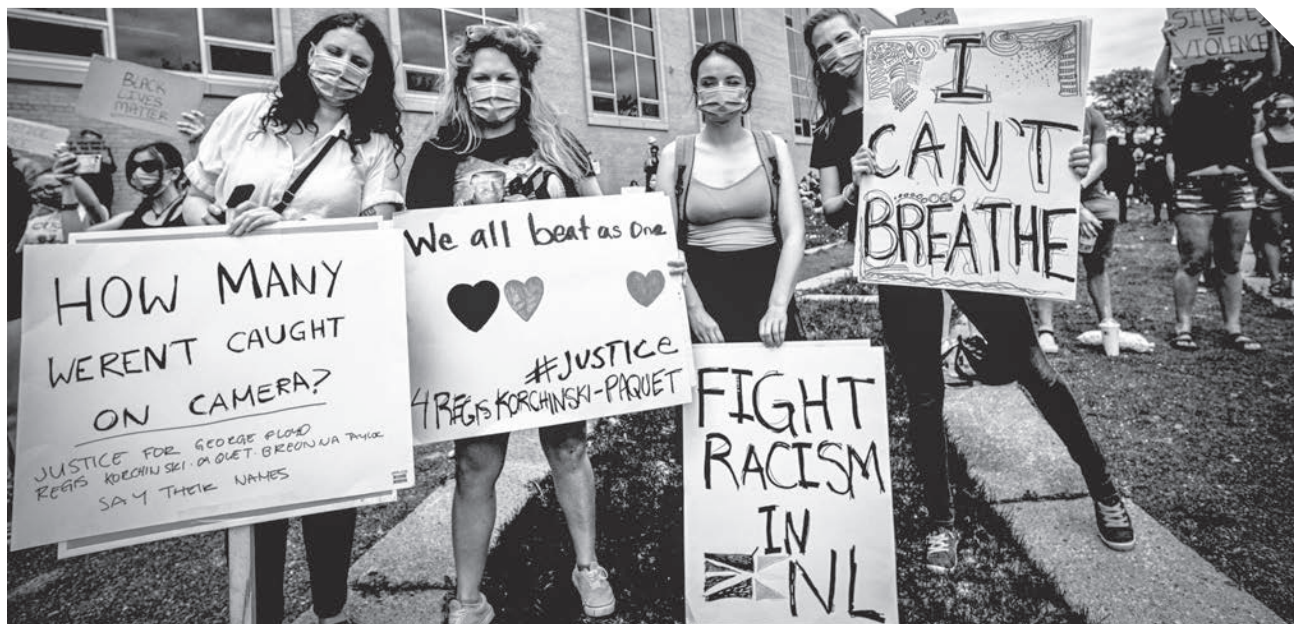 BLACK
LIVES
MATTER
HOW MANY
WERENT CAUGHT
ON CAMERA?
JUSTICE FOR GEORGE FLOYD
REGIS KORCHINSKI-PAQUET-BREONNA TAYLOR
SAY THEIR NAMES
We all beat as One
#JUSTICE
4 REGIS KORCHINSKI-PAQUET
FIGHT
RACISM
IN
NL
I
CAN'T
BREATHE
SILENCE
=
VIOLENCE